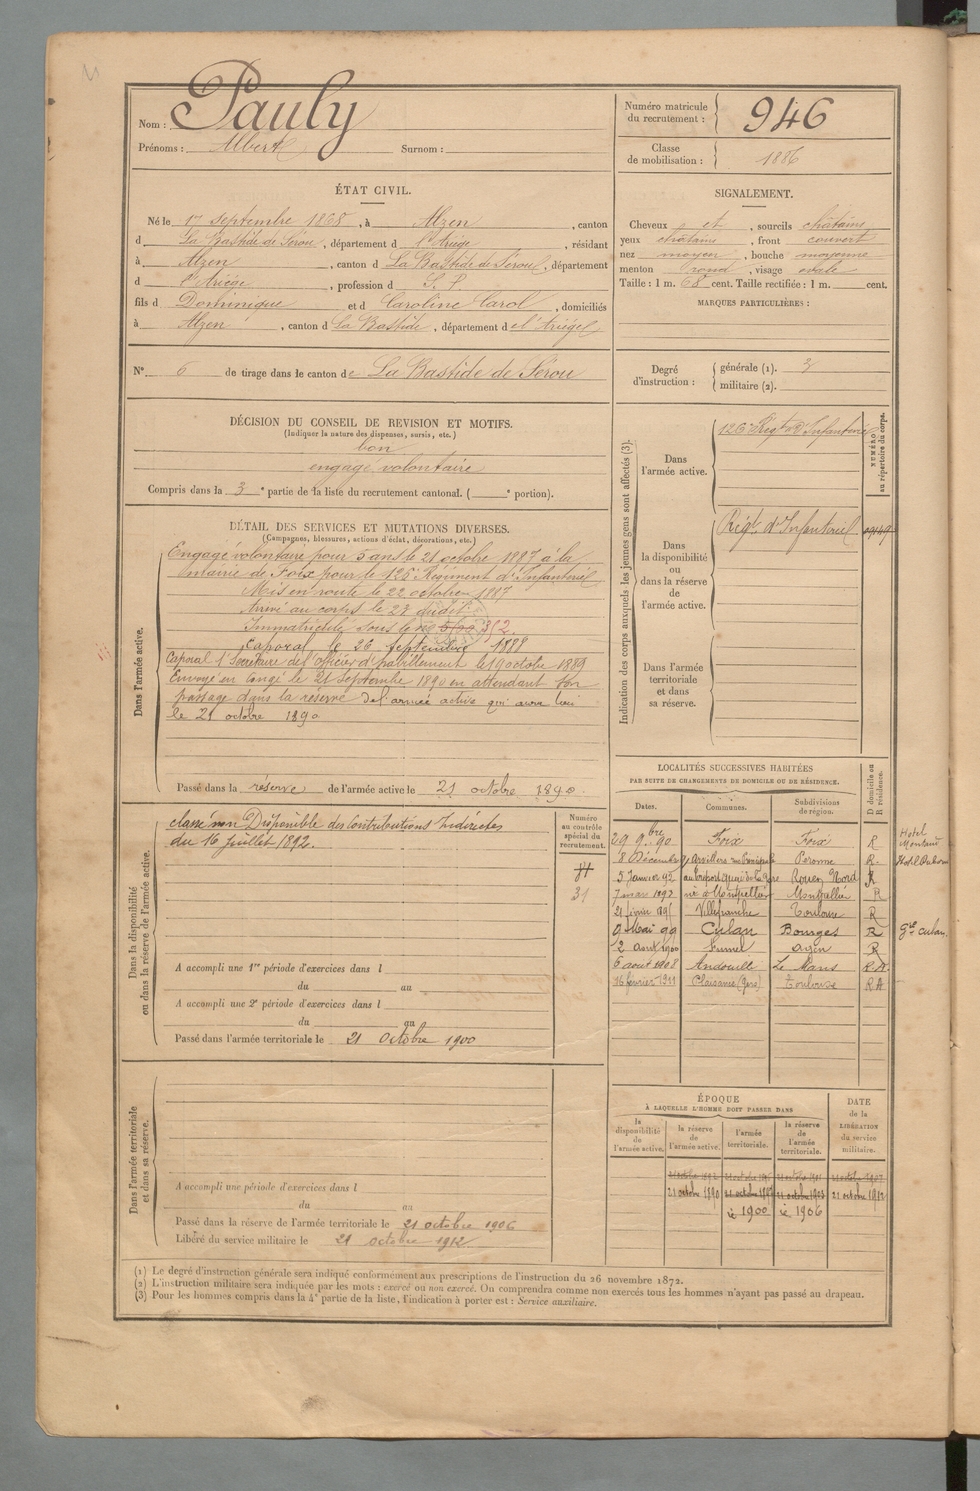 Nom : Pauly
Prénoms : Albert Surnom :
Numéro matricule du recrutement : 946
Classe de mobilisation : 1886
ÉTAT CIVIL.
Né le 17 septembre 1868, à Alzen, canton
d La Bastide de Sérou, département d l'Ariège, résidant
à Alzen, canton d La Bastide de Sérou, département
d l'Ariège, profession d S. P.
fils d Dominique et d Caroline Carol, domiciliés
à Alzen, canton d La Bastide, département d el'Ariège
SIGNALEMENT.
Cheveux et, sourcils châtains
yeux châtains, front couvert
nez moyen, bouche moyenne
menton rond, visage ovale
Taille : 1 m. 68 cent. Taille rectifiée : 1 m. cent.
MARQUES PARTICULIÈRES :
N° 6 de tirage dans le canton de La Bastide de Sérou
Degré d'instruction : générale (1). 3
militaire (2).
DÉCISION DU CONSEIL DE REVISION ET MOTIFS.
(Indiquer la nature des dispenses, sursis, etc.)
bon
engagé volontaire
Compris dans la 3e partie de la liste du recrutement cantonal. ( e portion).
DÉTAIL DES SERVICES ET MUTATIONS DIVERSES.
(Campagnes, blessures, actions d'éclat, décorations, etc.)
Dans l'armée active.
Engagé volontaire pour 5 ans le 21 octobre 1887 à la
mairie de Foix pour le 126e Régiment d'Infanterie
Mis en route le 22 octobre 1887
Arrivé au corps le 23 dudit
Immatriculé sous le no
Caporal le 26 septembre 1888
Caporal 1er Secrétaire de l'officier d'habillement le 19 octobre 1889
Envoyé en congé le 21 Septembre 1890 en attendant son
passage dans la réserve de l'armée active qui aura lieu
le 21 octobre 1890
Passé dans la réserve de l'armée active le 21 octobre 1890
Indication des corps auxquels les jeunes gens sont affectés (3).
NUMÉRO au répertoire du corps.
Dans l'armée active.
126e Régt d'Infanterie
Dans la disponibilité ou dans la réserve de l'armée active.
Régt d'Infanterie
Dans l'armée territoriale et dans sa réserve.
Dans la disponibilité ou dans la réserve de l'armée active.
classé non Disponible des Contributions Indirectes
du 16 juillet 1892.
Numéro au contrôle spécial du recrutement.
31
A accompli une 1re période d'exercices dans l
du au
A accompli une 2e période d'exercices dans l
du au
Passé dans l'armée territoriale le 21 Octobre 1900
LOCALITÉS SUCCESSIVES HABITÉES
PAR SUITE DE CHANGEMENTS DE DOMICILE OU DE RÉSIDENCE.
Dates. Communes. Subdivisions de région. D domicile ou R résidence.
29 9bre 90 Foix Foix R Hotel
8 Décembre Arvillers rue Principale Peronne R.
5 Janvier 92 au Tréport Quai de la Gare Rouen Nord R
7 mars 1892 Montpellier Montpellier R
21 1895 Villefranche Toulouse R
9 Mai 99 Culan Bourges R Gde Culan.
2 aout 1900 Fumel Agen R
6 aout 1908 Andouillé Le Mans R.A.
16 février 1911 Plaisance (Gers) Toulouse RA
Dans l'armée territoriale et dans sa réserve.
A accompli une période d'exercices dans l
du au
Passé dans la réserve de l'armée territoriale le 21 octobre 1906
Libéré du service militaire le 21 octobre 1912
ÉPOQUE
À LAQUELLE L'HOMME DOIT PASSER DANS
la disponibilité de l'armée active. la réserve de l'armée active. l'armée territoriale. la réserve de l'armée territoriale. DATE de la LIBÉRATION du service militaire.
21 octobre 1890 21 octobre 1897 21 octobre 1903 21 octobre 1912
1900 1906
(1) Le degré d'instruction générale sera indiqué conformément aux prescriptions de l'instruction du 26 novembre 1872.
(2) L'instruction militaire sera indiquée par les mots : exercé ou non exercé. On comprendra comme non exercés tous les hommes n'ayant pas passé au drapeau.
(3) Pour les hommes compris dans la 4e partie de la liste, l'indication à porter est : Service auxiliaire.